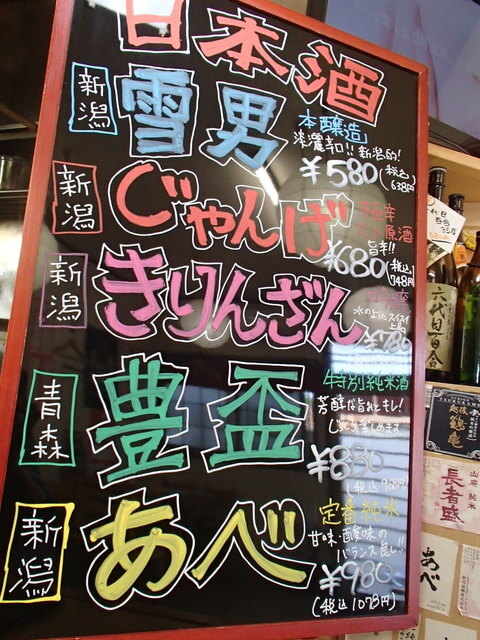 日本酒
新潟
雪男
本醸造
淡麗辛口!! 新潟的!
¥580(税込
638円)
新潟
じゃんげ
原酒
旨辛!!
¥680(税込
748円
新潟
きりんざん
水のようにスイスイ
¥780
青森
豊盃
特別純米酒
芳醇な旨みとキレ!
¥880
税込 968円
新潟
あべ
定番純米
甘味・酸味の
バランス良し!!
¥980
(税込 1078円)
六代目百合
越後
鶴亀
山廃 純米
長者盛
あべ